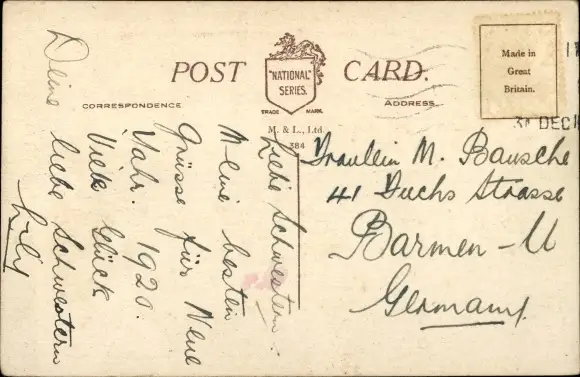 POST CARD.
"NATIONAL"
SERIES.
TRADE MARK.
CORRESPONDENCE
ADDRESS.
M. & L., Ltd.
384
Made in
Great
Britain.
DEC
Liebe Schwestern:
Meine besten
Grüsse für Neue
Yahr. 1920.
Viele Glück
Deine liebe Schwestern
Lily
Fraulein M. Bausche
41 Fuchs Strasse
Barmen - U
Germany